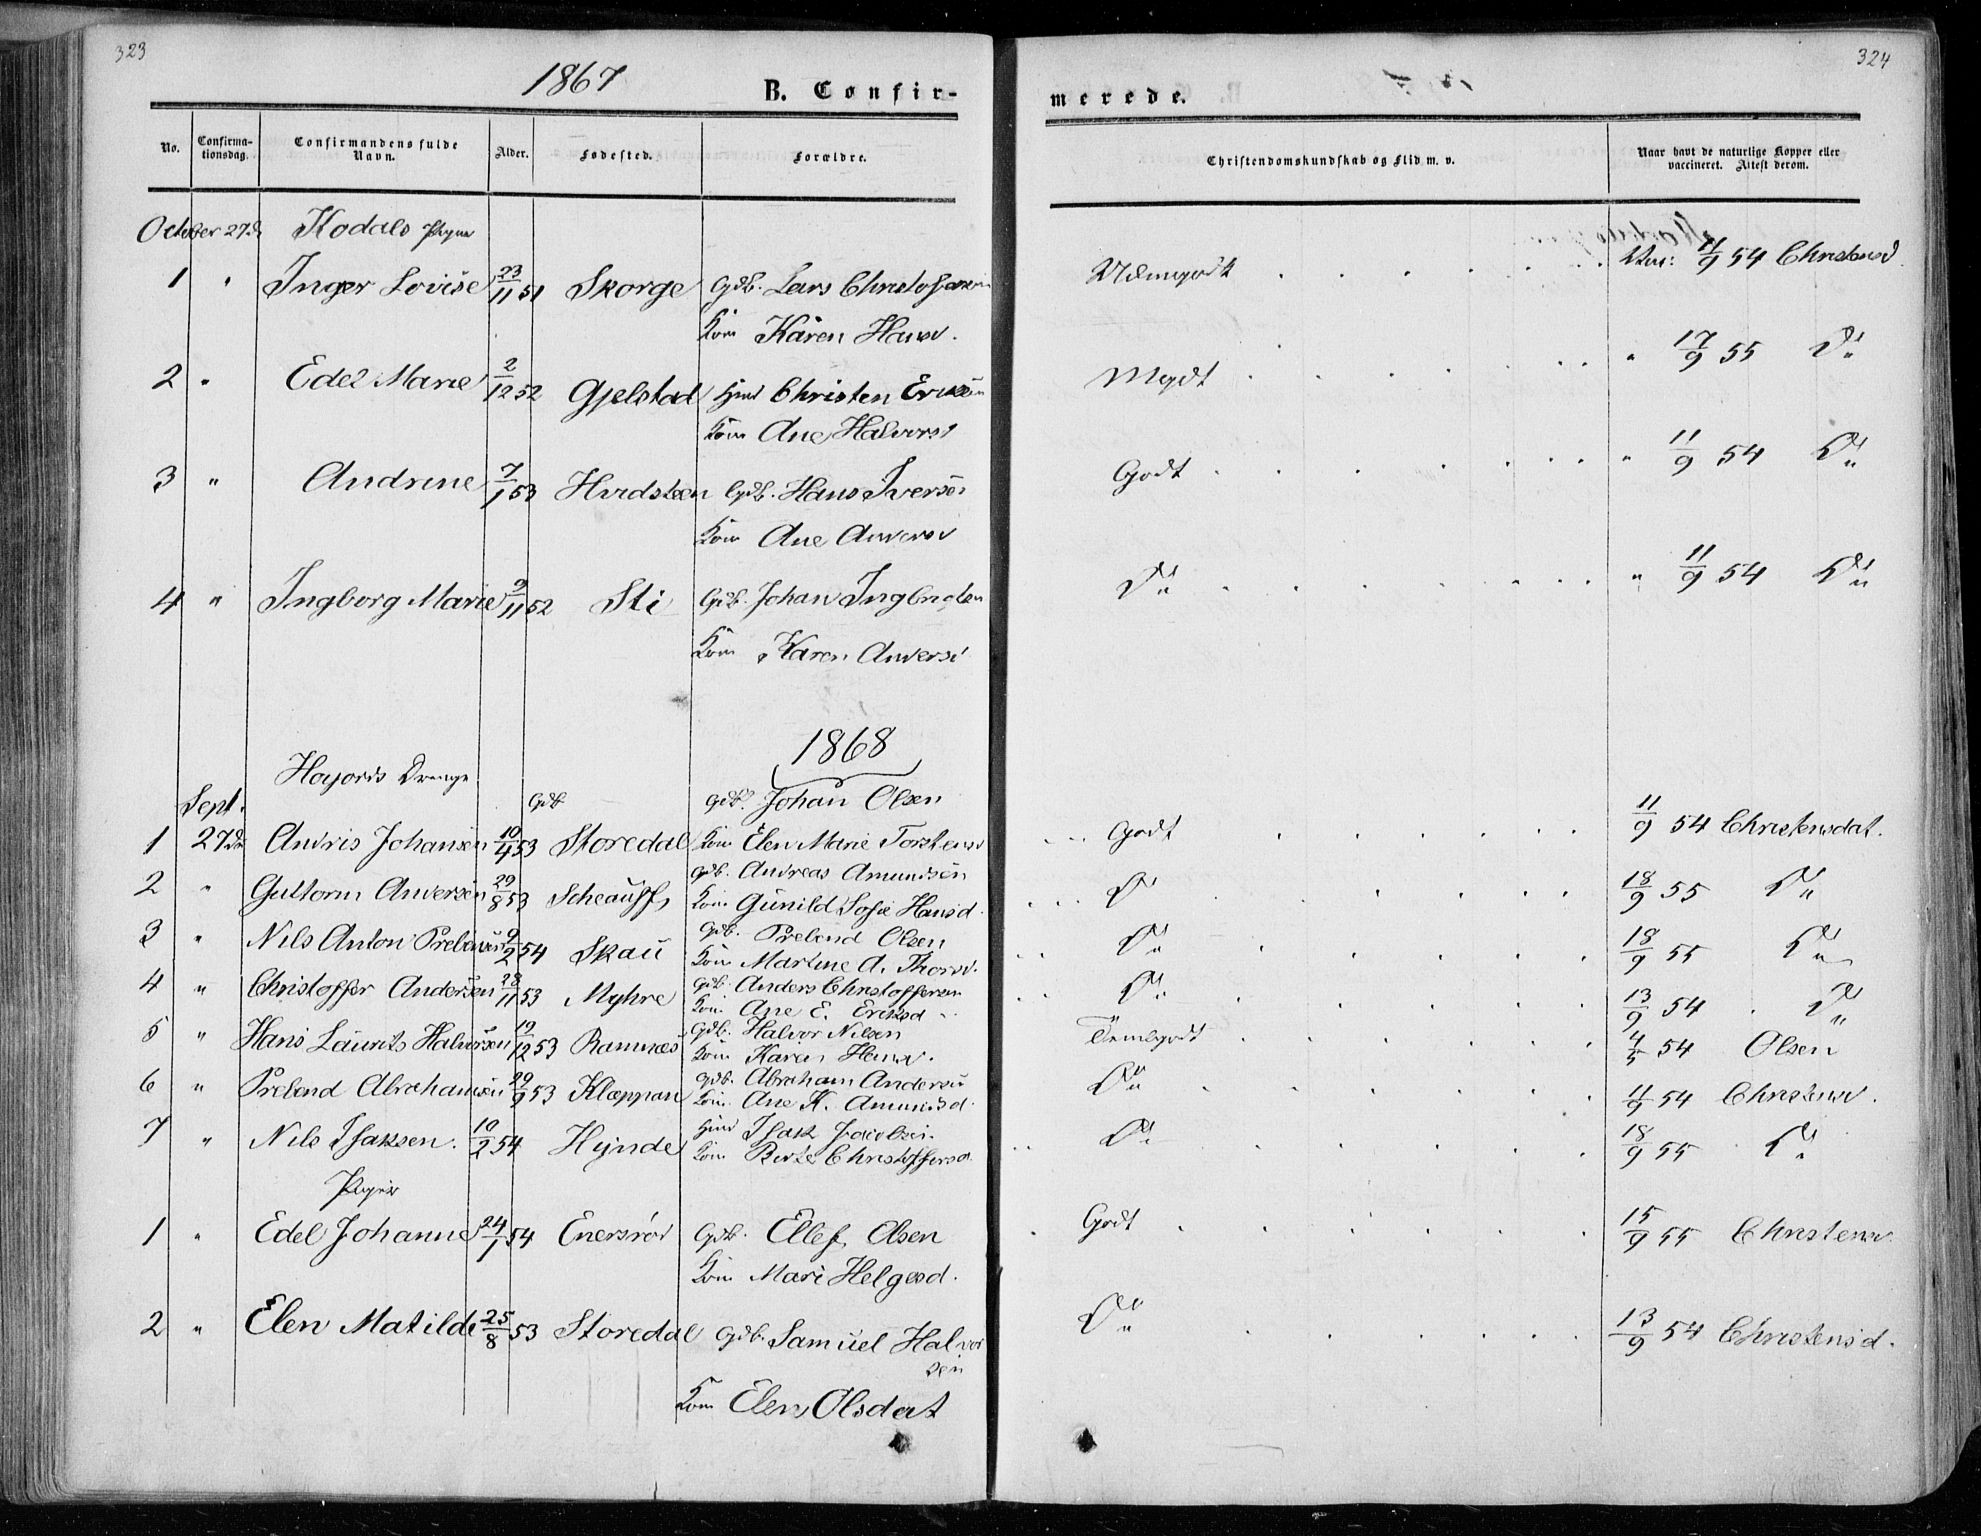 323
324
1867
B. Confir-
merede.
No.
Confirma-
tionsdag.
Confirmandens fulde
Navn.
Alder.
Fødested.
Forældre.
Christendomskundskab og Flid m. v.
Naar havt de naturlige Kopper eller
vaccineret. Attest derom.
October 27d Kodals Piger
1 " Inger Lovise 23/11 51 Skorge Gdb. Lars Christofersen
Kone Karen Hansd.
2 " Edel Marie 2/12 52 Gjelstad Hmd Christen Eriksen
Kone Ane Halvorsd
Mgdt . . . . . . . " 17/9 55 Do
3 " Andrine 7/1 53 Hvidsteen Gdb. Hans Iversen
Kone Ane Andersd
Godt . . . . . . . " 11/9 54 Do
4 " Ingborg Marie 9/11 52 Sti Gdb. Johan
Kone Karen Andersd
Do . . . . . . . " 11/9 54 Do
1868
Høyords Drenge
Sept. Gdb Gdb. Johan Olsen
1 27de Andris Johansen 10/4 53 Storedal Kone Elen Marie Torstensd
Godt . . . . . . 11/9 54 Christensdat.
2 " Guttorm Andersen 29/8 53 Gdb. Andreas Amundsen
Kone Gunild Sofie Hansd.
Do . . . . 18/9 55 Do
3 " Nils Anton Prebensen 9/2 54 Skau Gdb. Prebend Olsen
Kone Martine A. Thorsd.
Do . . . . 18/9 55 Do
4 " Christoffer Andersen 28/11 53 Myhre Gdb. Anders Christoffersen
Kone Ane E. Eriksd
Do . . . . 13/9 54 Do
5 " Hans Laurits Halvorsen 19/12 53 Ramnæs Gdb. Halvor Nilsen
Kone Karen Hansd.
Temlgodt . . . . . 4/5 54 Olsen
6 " Prebend Abrahamsen 29/9 53 Klæppan Gdb. Abraham Andersen
Kone Ane K. Amundsd.
Do . . . . . 11/9 54 Christensd.
7 " Nils Isaksen. 10/2 54 Hynde Hmd Isak Jacobsen.
Kone Berte Christoffersd.
Do . . . . 18/9 55 Do
Piger
1 " Edel Johanne 24/1 54 Enersrød Gdb. Ellef Olsen
Kone Mari Helgesd.
Godt . . . . . . 15/9 55 Christensd.
2 " Elen Matilde 25/8 53 Storedal Gdb. Samuel Halvor
sen
Kone Elen Olsdat
Do . . . . . . 13/9 54 Christensd.